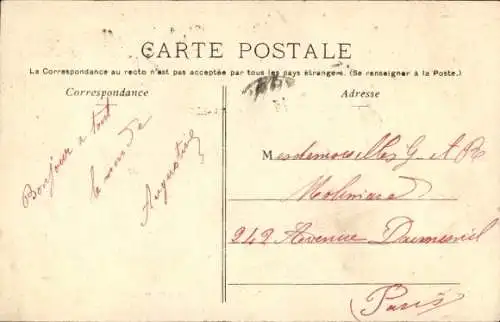 CARTE POSTALE
La Correspondance au recto n'est pas acceptée par tous les pays étrangers. (Se renseigner à la Poste.)
Correspondance
Adresse
Bonjour a tout
le monde
Mesdemoiselles G et R
242 Avenue Daumesnil
Paris